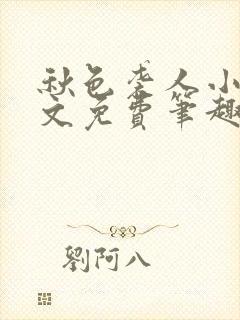 秋色老人小
文免費筆趣
劉阿八